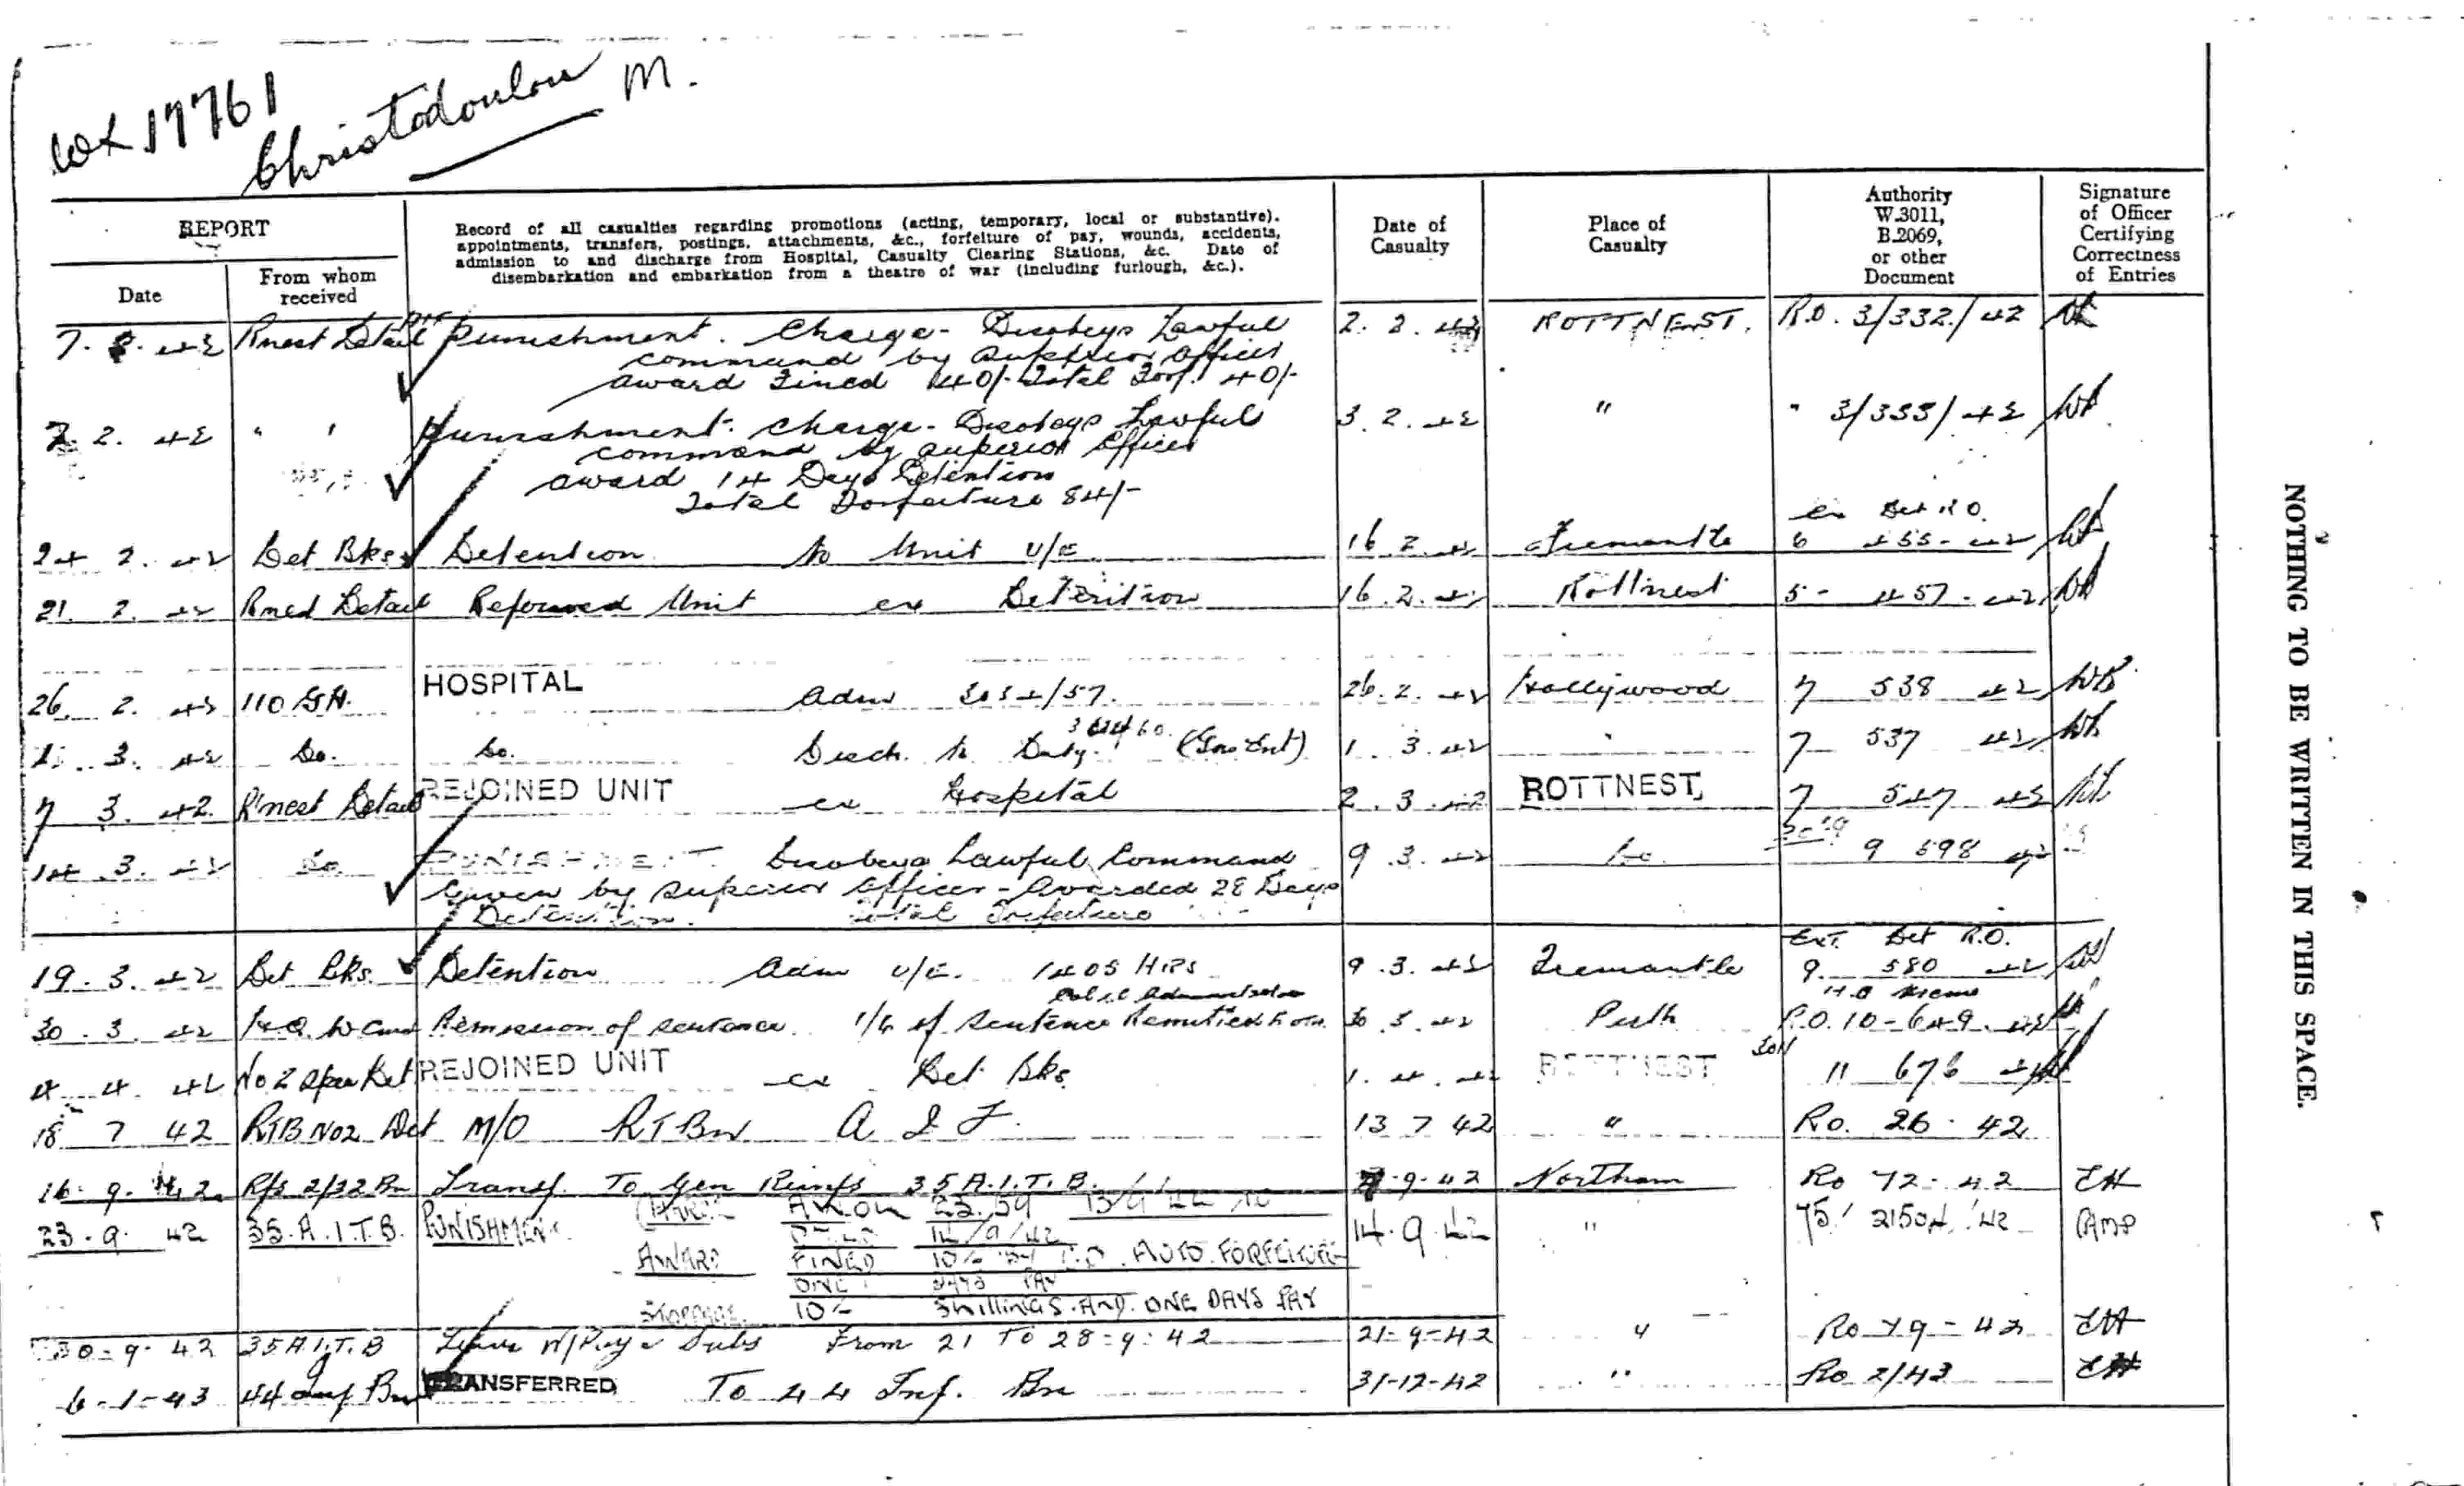 WX 17761
Christodoulou M.
REPORT
Date
From whom received
Record of all casualties regarding promotions (acting, temporary, local or substantive).
appointments, transfers, postings, attachments, &c., forfeiture of pay, wounds, accidents,
admission to and discharge from Hospital, Casualty Clearing Stations, &c. Date of
disembarkation and embarkation from a theatre of war (including furlough, &c.).
Date of Casualty
Place of Casualty
Authority W.3011, B.2069, or other Document
Signature of Officer Certifying Correctness of Entries
Punishment. Charge - Disobeys Lawful 2. 2. 42 ROTTNEST. R.O. 3/332/42
command by superior officer
award Fined 40/- Total Forf. 40/-
2. 42 " " Punishment. Charge - Disobeys Lawful 3. 2. 42 " " 3/333/42
command by superior officer
award 14 Days Detention
Total Forfeiture 84/-
Det R.O.
24 2. 42 Det Bks Detention to Unit 16 2. 42 Fremantle 6 455 - 42
21. 2. 42 Unit ex Detention 16. 2. 42 Rottnest 5 - 457 - 42
26. 2. 42 110 G.H. HOSPITAL Adm 26. 2. 42 Hollywood 7 538 42
3. 42 Do. Do. Disch. to Duty. 1. 3. 42 " 7 537 42
7 3. 42. R'nest Detail REJOINED UNIT ex Hospital 2. 3. 42 ROTTNEST, 7 547 42
14. 3. 42 Do. PUNISHMENT. Disobeys Lawful Command 9. 3. 42 Do. 9 598 42
Given by superior officer - Awarded 28 Days
Detention. Total Forfeiture
Ext. Det R.O.
19. 3. 42 Det Bks. Detention Adm 1405 Hrs 9. 3. 42 Fremantle 9. 580 42
30. 3. 42 Remission of sentence. 1/4 of sentence Remitted 30. 3. 42 Perth R.O. 10 - 649. 42
4. 4. 42 REJOINED UNIT ex Det Bks. 1. 4. 42 ROTTNEST 11 676 42
18 7 42 RTB No 2 Det M/O RTBn A I F 13 7 42 " Ro. 26 - 42
16. 9. 42 2/32 Bn Transf. To Gen Reinfs 35 A.I.T.B. 9-42 Northam Ro 72 - 42
23. 9. 42 35. A.I.T.B. PUNISHMENT 23.59 14. 9. 42 " 75/ 42
AWARD FINED AUTO. FORFEITURE
ONE DAYS PAY
10/- Shillings. And. ONE DAYS PAY
30-9-42 35 A.I.T.B Leave From 21 To 28-9-42 21-9-42 " Ro 79 - 42
6-1-43 44 Inf Bn TRANSFERRED To 44 Inf. Bn 31-12-42 " Ro 2/43
NOTHING TO BE WRITTEN IN THIS SPACE.